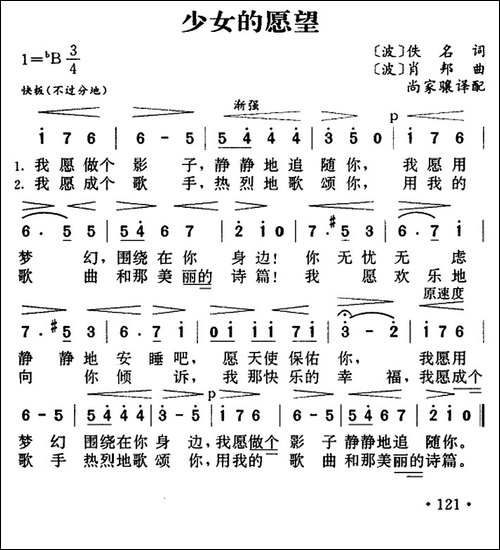 少女的愿望
1=♭B 3/4
〔波〕佚名 词
〔波〕肖邦 曲
尚家骧译配
快板(不过分地)
渐强
p
i 7 6 | 6 - 5 | 5 4 4 4 | 3 5 0 | i 7 6 |
1. 我愿做个 影 子,静静地追 随你, 我愿用
2. 我愿成个 歌 手,热烈地歌 颂你, 用我的
6· 5 5 | 5 4 6 7 | 2 i 0 | 7· #5 3 | 6· 5 6 |
梦 幻,围绕在你 身边! 你 无忧 无 虑
歌 曲和那美丽的 诗篇! 我 愿 欢乐地
原速度
7· #5 3 | 6· 7 i | 0 i i i 7 i | 3 - 2 | i 7 6 |
静 静地 安 睡吧, 愿天使保佑 你, 我愿用
向 你倾 诉, 我那快乐的 幸 福,我愿成个
p
6 - 5 | 5 4 4 4 | 3 5 0 | i 7 6 | 6 - 5 | 5 4 6 7 | 2 i 0 ‖
梦 幻 围绕在你 身 边,我愿做个 影 子静静地追 随你。
歌 手 热烈地歌 颂 你,用我的 歌 曲和那美丽的诗篇。
· 121 ·